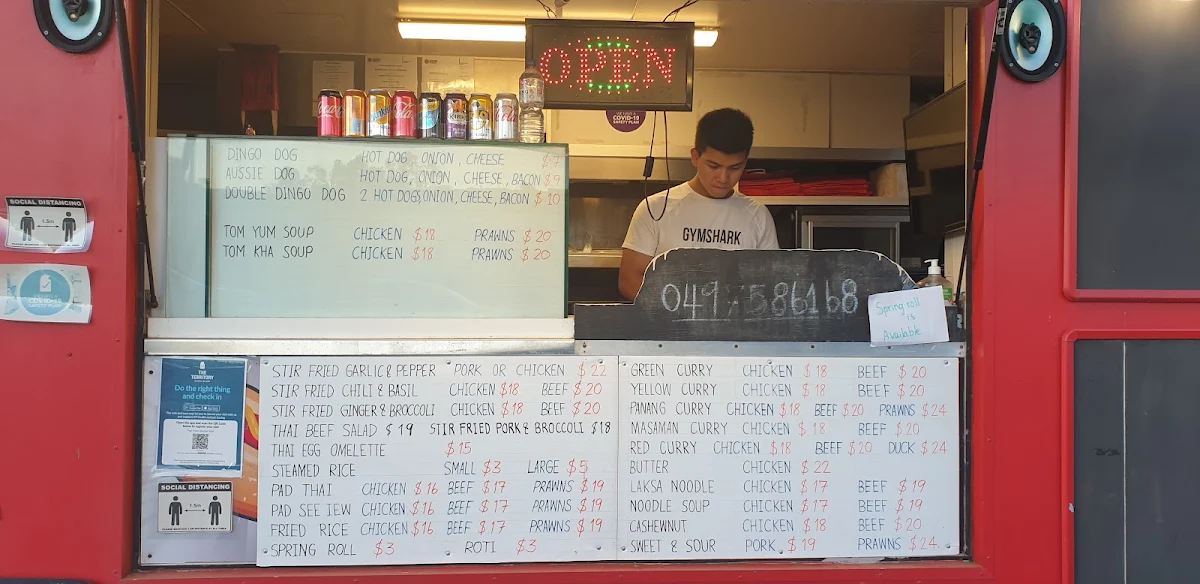 OPEN
COVID-19
SAFETY PLAN
GYMSHARK
DINGO DOG HOT DOG, ONION, CHEESE $7
AUSSIE DOG HOT DOG, ONION, CHEESE, BACON $9
DOUBLE DINGO DOG 2 HOT DOGS, ONION, CHEESE, BACON $10
TOM YUM SOUP CHICKEN $18 PRAWNS $20
TOM KHA SOUP CHICKEN $18 PRAWNS $20
Spring roll
is
Available
SOCIAL DISTANCING
1.5m
COVID-19
SAFETY PLAN
THE
TERRITORY
Do the right thing
and check in
SOCIAL DISTANCING
1.5m
STIR FRIED GARLIC & PEPPER PORK OR CHICKEN $22
STIR FRIED CHILI & BASIL CHICKEN $18 BEEF $20
STIR FRIED GINGER & BROCCOLI CHICKEN $18 BEEF $20
THAI BEEF SALAD $19 STIR FRIED PORK & BROCCOLI $18
THAI EGG OMELETTE $15
STEAMED RICE SMALL $3 LARGE $5
PAD THAI CHICKEN $16 BEEF $17 PRAWNS $19
PAD SEE IEW CHICKEN $16 BEEF $17 PRAWNS $19
FRIED RICE CHICKEN $16 BEEF $17 PRAWNS $19
SPRING ROLL $3 ROTI $3
GREEN CURRY CHICKEN $18 BEEF $20
YELLOW CURRY CHICKEN $18 BEEF $20
PANANG CURRY CHICKEN $18 BEEF $20 PRAWNS $24
MASAMAN CURRY CHICKEN $18 BEEF $20
RED CURRY CHICKEN $18 BEEF $20 DUCK $24
BUTTER CHICKEN $22
LAKSA NOODLE CHICKEN $17 BEEF $19
NOODLE SOUP CHICKEN $17 BEEF $19
CASHEWNUT CHICKEN $18 BEEF $20
SWEET & SOUR PORK $19 PRAWNS $24